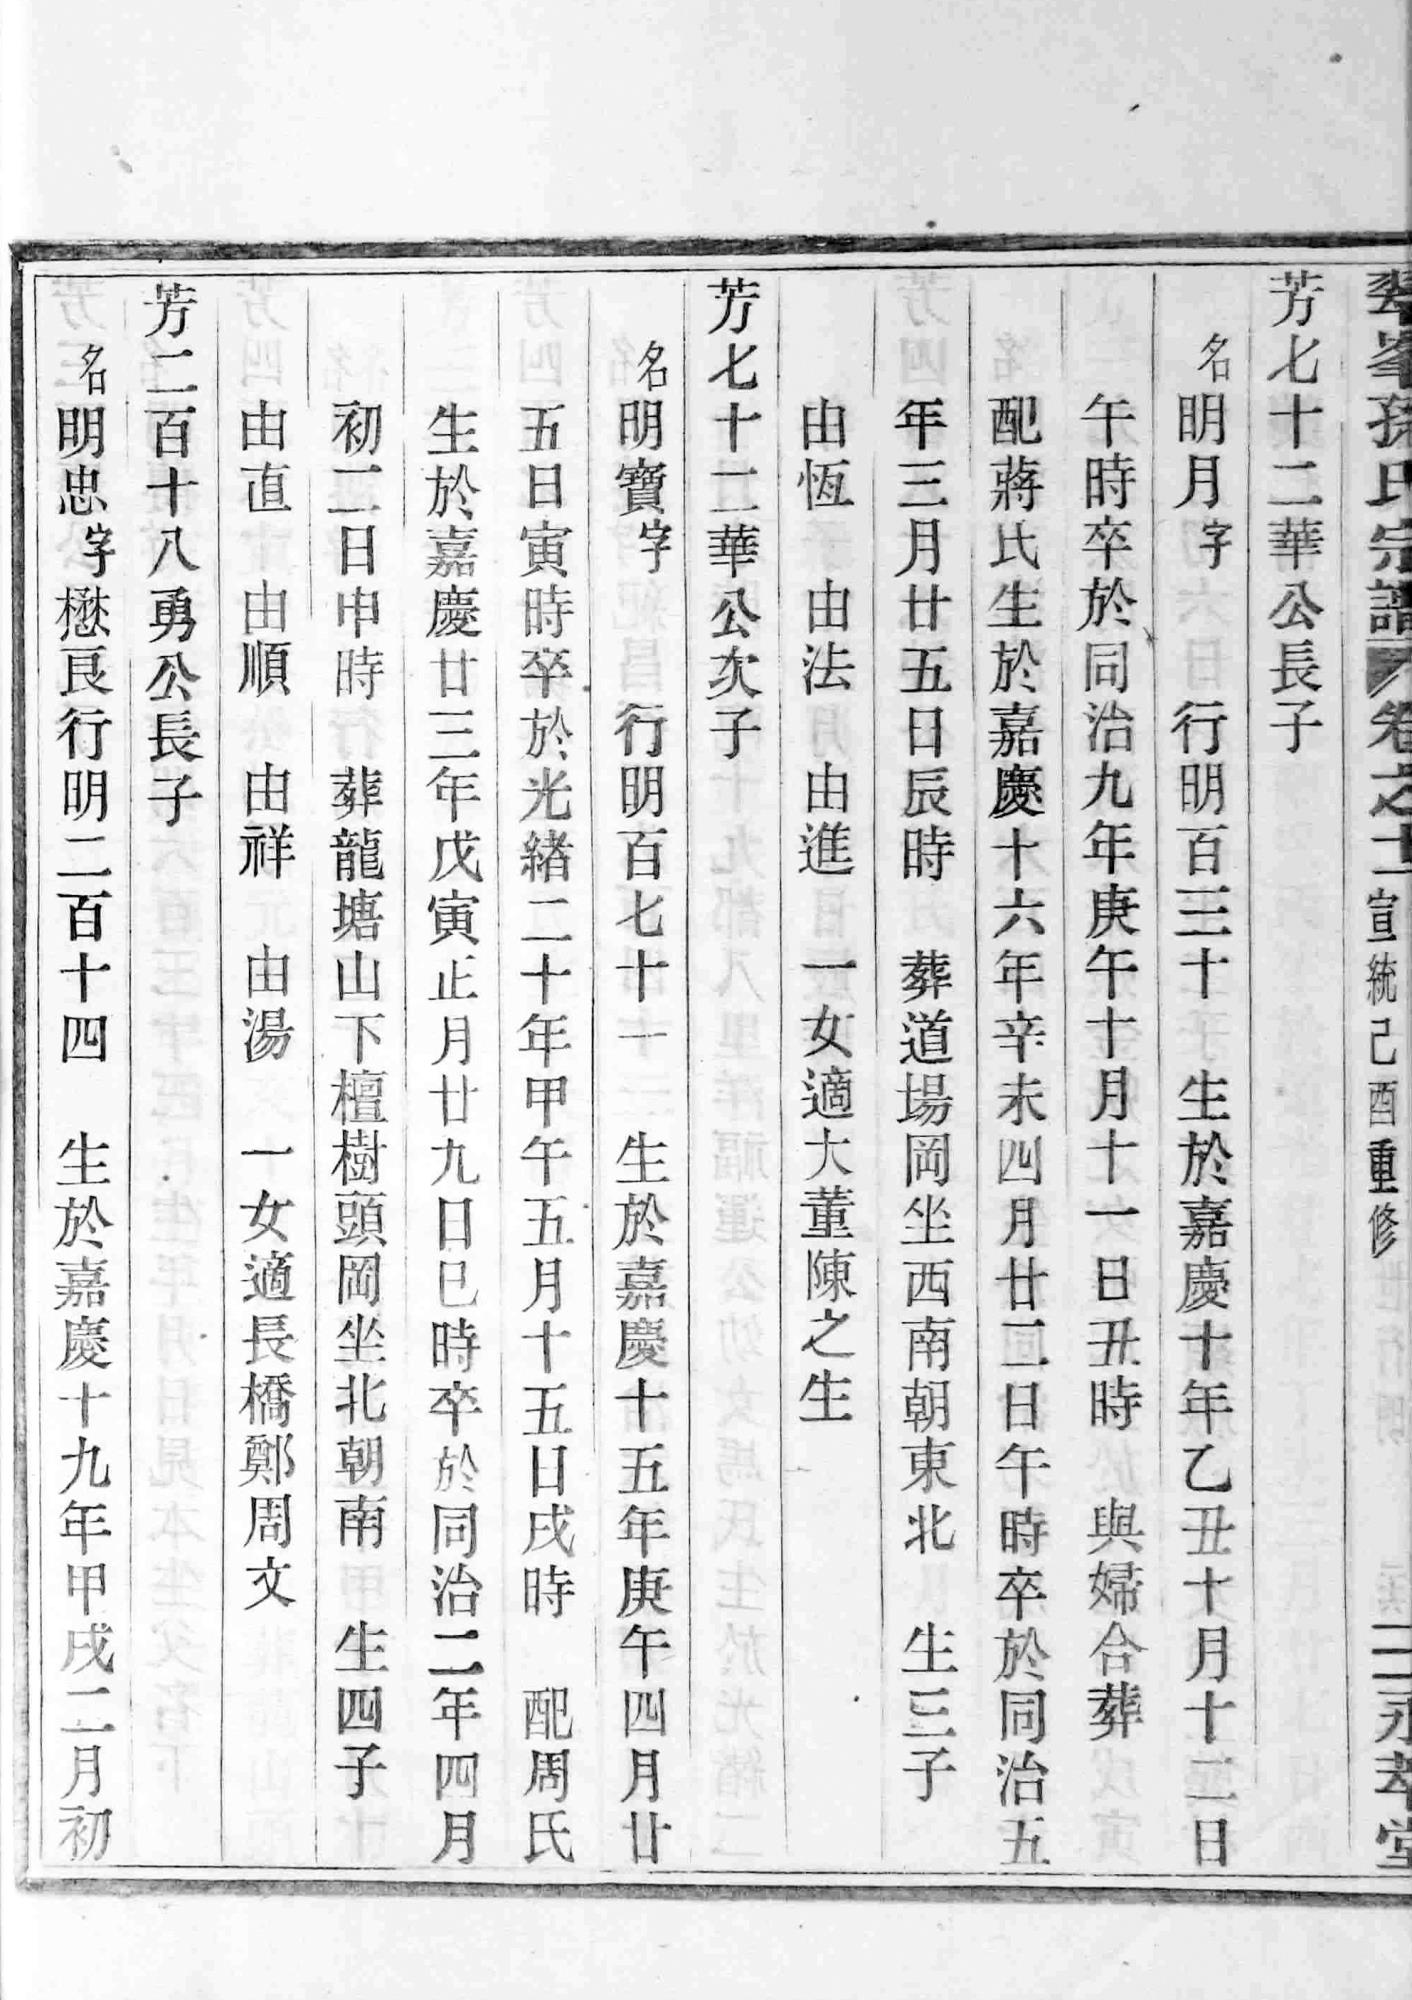 翠峯孫氏宗譜 卷之十一 宣統己酉重修 二 永萃堂
芳七十二華公長子
名明月字 行明百三十 生於嘉慶十年乙丑十月十二日
午時卒於同治九年庚午十月十一日丑時 與婦合葬
配蔣氏生於嘉慶十六年辛未四月廿二日午時卒於同治五
年三月廿五日辰時 葬道場岡坐西南朝東北 生三子
由恆 由法 由進 一女適大董陳之生
芳七十二華公次子
名明寶字 行明百七十一 生於嘉慶十五年庚午四月廿
五日寅時卒於光緒二十年甲午五月十五日戌時 配周氏
生於嘉慶廿三年戊寅正月廿九日巳時卒於同治二年四月
初二日申時 葬龍塘山下檀樹頭岡坐北朝南 生四子
由直 由順 由祥 由湯 一女適長橋鄭周文
芳二百十八勇公長子
名明忠字懋良行明二百十四 生於嘉慶十九年甲戌二月初